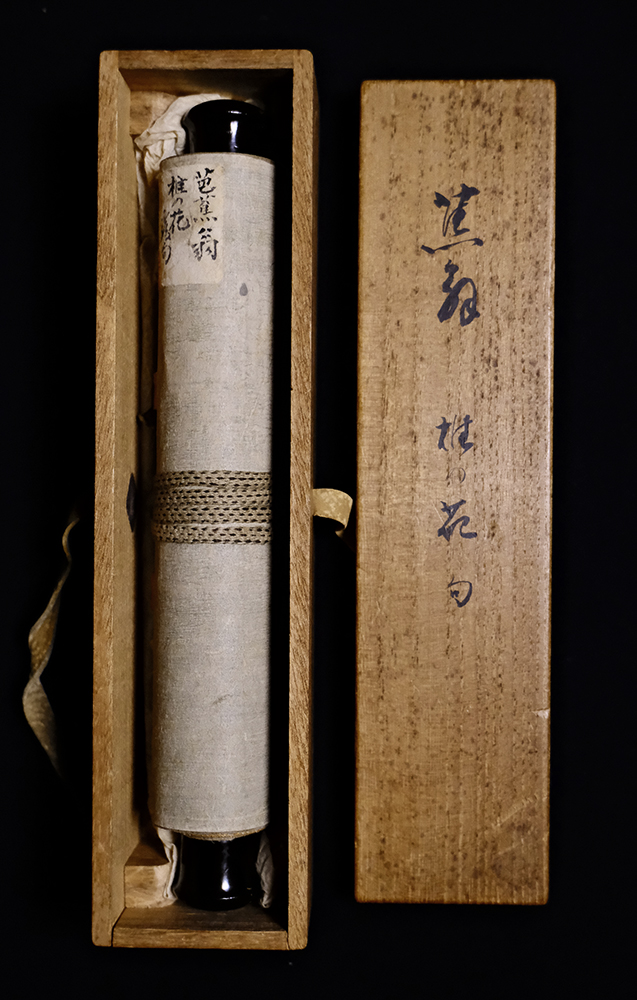 芭蕉翁
椎の花
蕉翁 椎の花 句